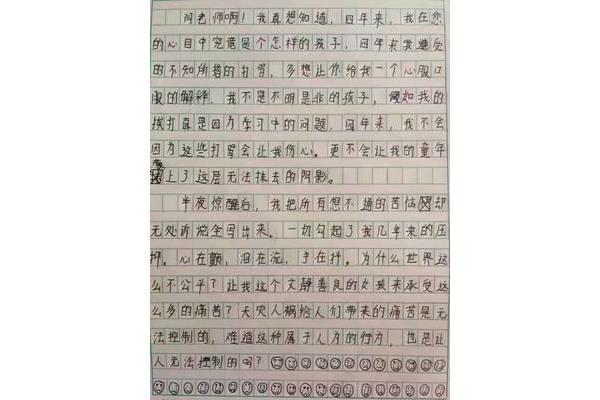 闫老师啊!我真想知道,四年来,我在您
的心目中究竟是个怎样的孩子,四年来我遭受
的不知所措的打骂,多想让你给我一个心服口
服的解释,我不是不明是非的孩子,假如我的
挨打真是因为学习中的问题,四年来,我不会
因为这些打骂会让我伤心。更不会让我的童年
蒙上了这层无法抹去的阴影。
半夜惊醒后,我把所有想不通的苦恼却
无处诉说全写出来。一切勾起了我几年来的压
抑。心在颤,泪在流,手在抖。为什么世界这
么不公平?让我这个文静善良的女孩来承受这
么多的痛苦?天灾人祸给人们带来的痛苦是无
法控制的,难道这种属于人为的行为,也是让
人无法控制的吗?